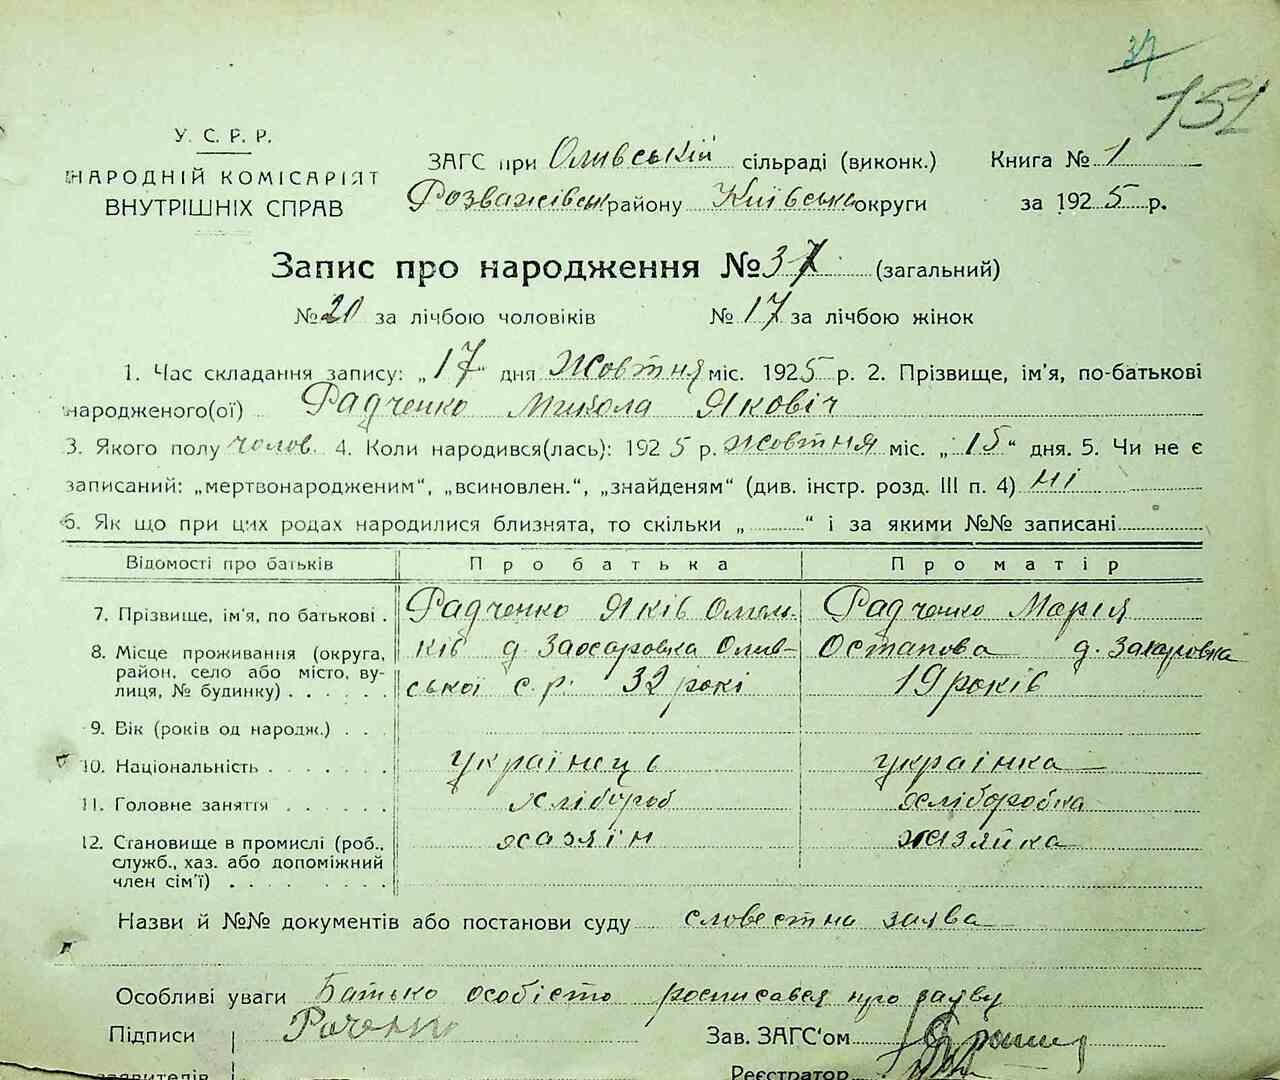 37
151
У. С. Р. Р.
НАРОДНІЙ КОМІСАРІЯТ
ВНУТРІШНІХ СПРАВ
ЗАГС при Оливській сільраді (виконк.) Книга № 1
Розважівськ району Київська округи за 1925 р.
Запис про народження № 37 (загальний)
№ 20 за лічбою чоловіків № 17 за лічбою жінок
1. Час складання запису: „17“ дня Жовтня міс. 1925 р. 2. Прізвище, ім'я, по-батькові
народженого(ої) Радченко Микола Яковіч
3. Якого полу чолов. 4. Коли народився(лась): 1925 р. жовтня міс. „15“ дня. 5. Чи не є
записаний: „мертвонародженим“, „всиновлен.“, „знайденям“ (див. інстр. розд. III п. 4) ні
6. Як що при цих родах народилися близнята, то скільки „ “ і за якими №№ записані
Відомості про батьків Про батька Про матір
7. Прізвище, ім'я, по батькові . Радченко Яків Омель- Радченко Марія
8. Місце проживання (округа, ків д. Захаровка Олив- Остапова д. Захаровка
район, село або місто, ву-
лиця, № будинку) . . . . . . ської с.р. 32 рокі 19 років
9. Вік (років од народж.) . . .
10. Національність . . . . . . . українець українка
11. Головне заняття . . . . . . хлібороб хліборобка
12. Становище в промислі (роб., хазяін хазяйка
служб., хаз. або допоміжний
член сім'ї) . . . . . . . .
Назви й №№ документів або постанови суду словестна заява
Особливі уваги Батько особісто росписався про заяву
Підписи Раченко Зав. ЗАГС'ом
заявителів Реєстратор